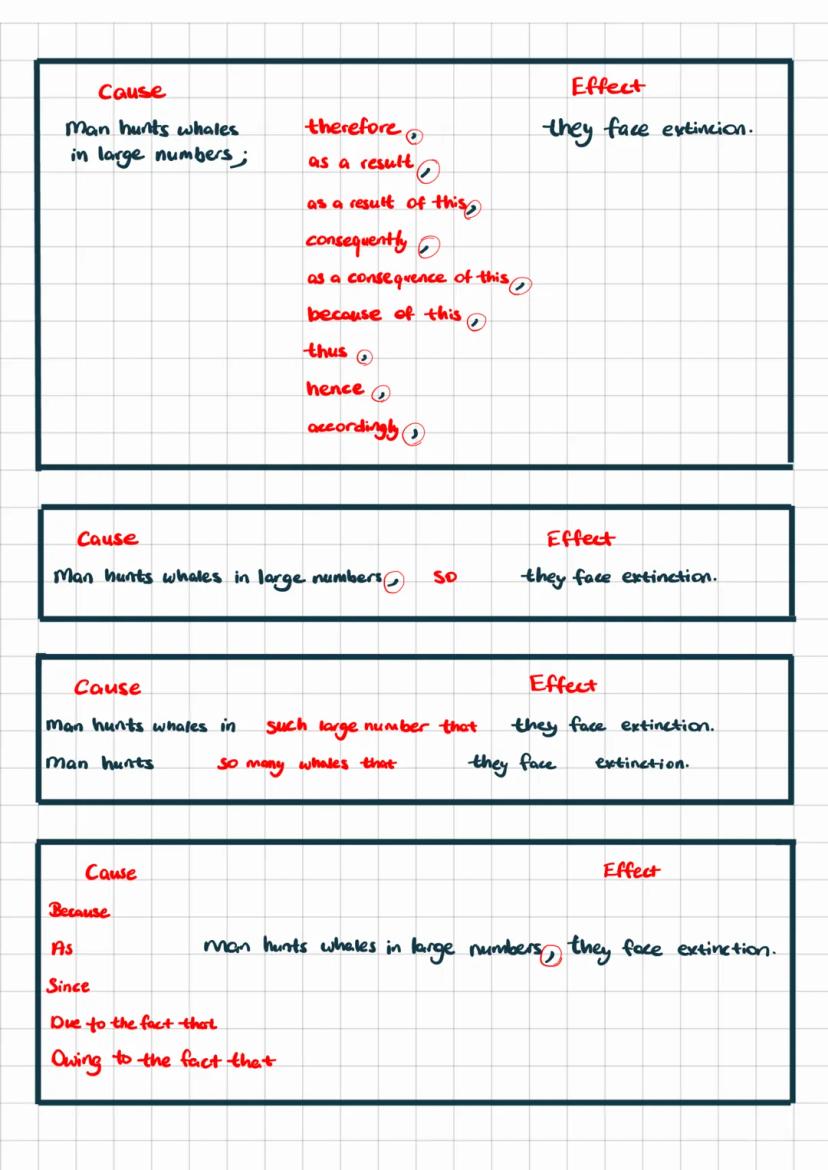 Cause Effect
Man hunts whales therefore, they face extincion.
in large numbers;
as a result,
as a result of this,
consequently,
as a consequence of this,
because of this,
thus,
hence,
accordingly,
Cause Effect
Man hunts whales in large numbers, so they face extinction.
Cause Effect
Man hunts whales in such large number that they face extinction.
Man hunts so many whales that they face extinction.
Cause Effect
Because
As man hunts whales in large numbers, they face extinction.
Since
Due to the fact that
Owing to the fact that